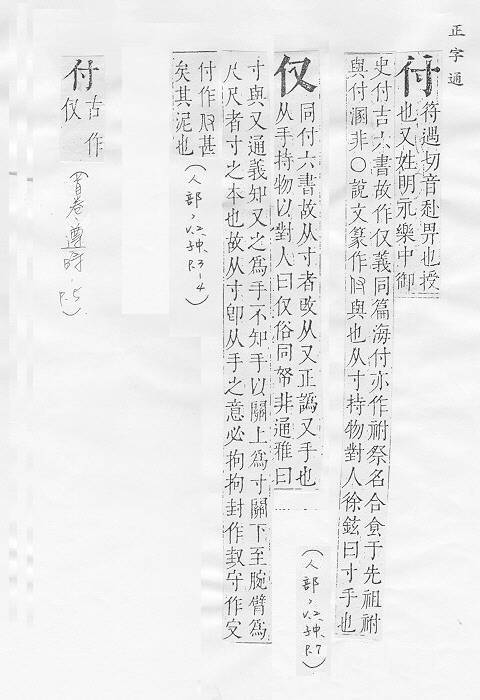 正字通
付
符遇切音赴畀也授
也又姓明永樂中御
史付吉六書故作仅義同篇海付亦作祔祭名合食于先祖祔
與付溷非〇說文篆作𠬝與也从寸持物對人徐鉉曰寸手也
(人部,八子中,P.3-4)
仅
同付六書故从寸者改从又正譌又手也
从手持物以對人曰仅俗同孥非通雅曰
寸與又通義知又之為手不知手以關上為寸關下至腕臂為
尺尺者寸之本也故从寸卽从手之意必拘拘封作𡉚守作㝊
付作𠬝甚
矣其泥也
P.7)
付
古作
仅
(首卷,遵時,P.5)